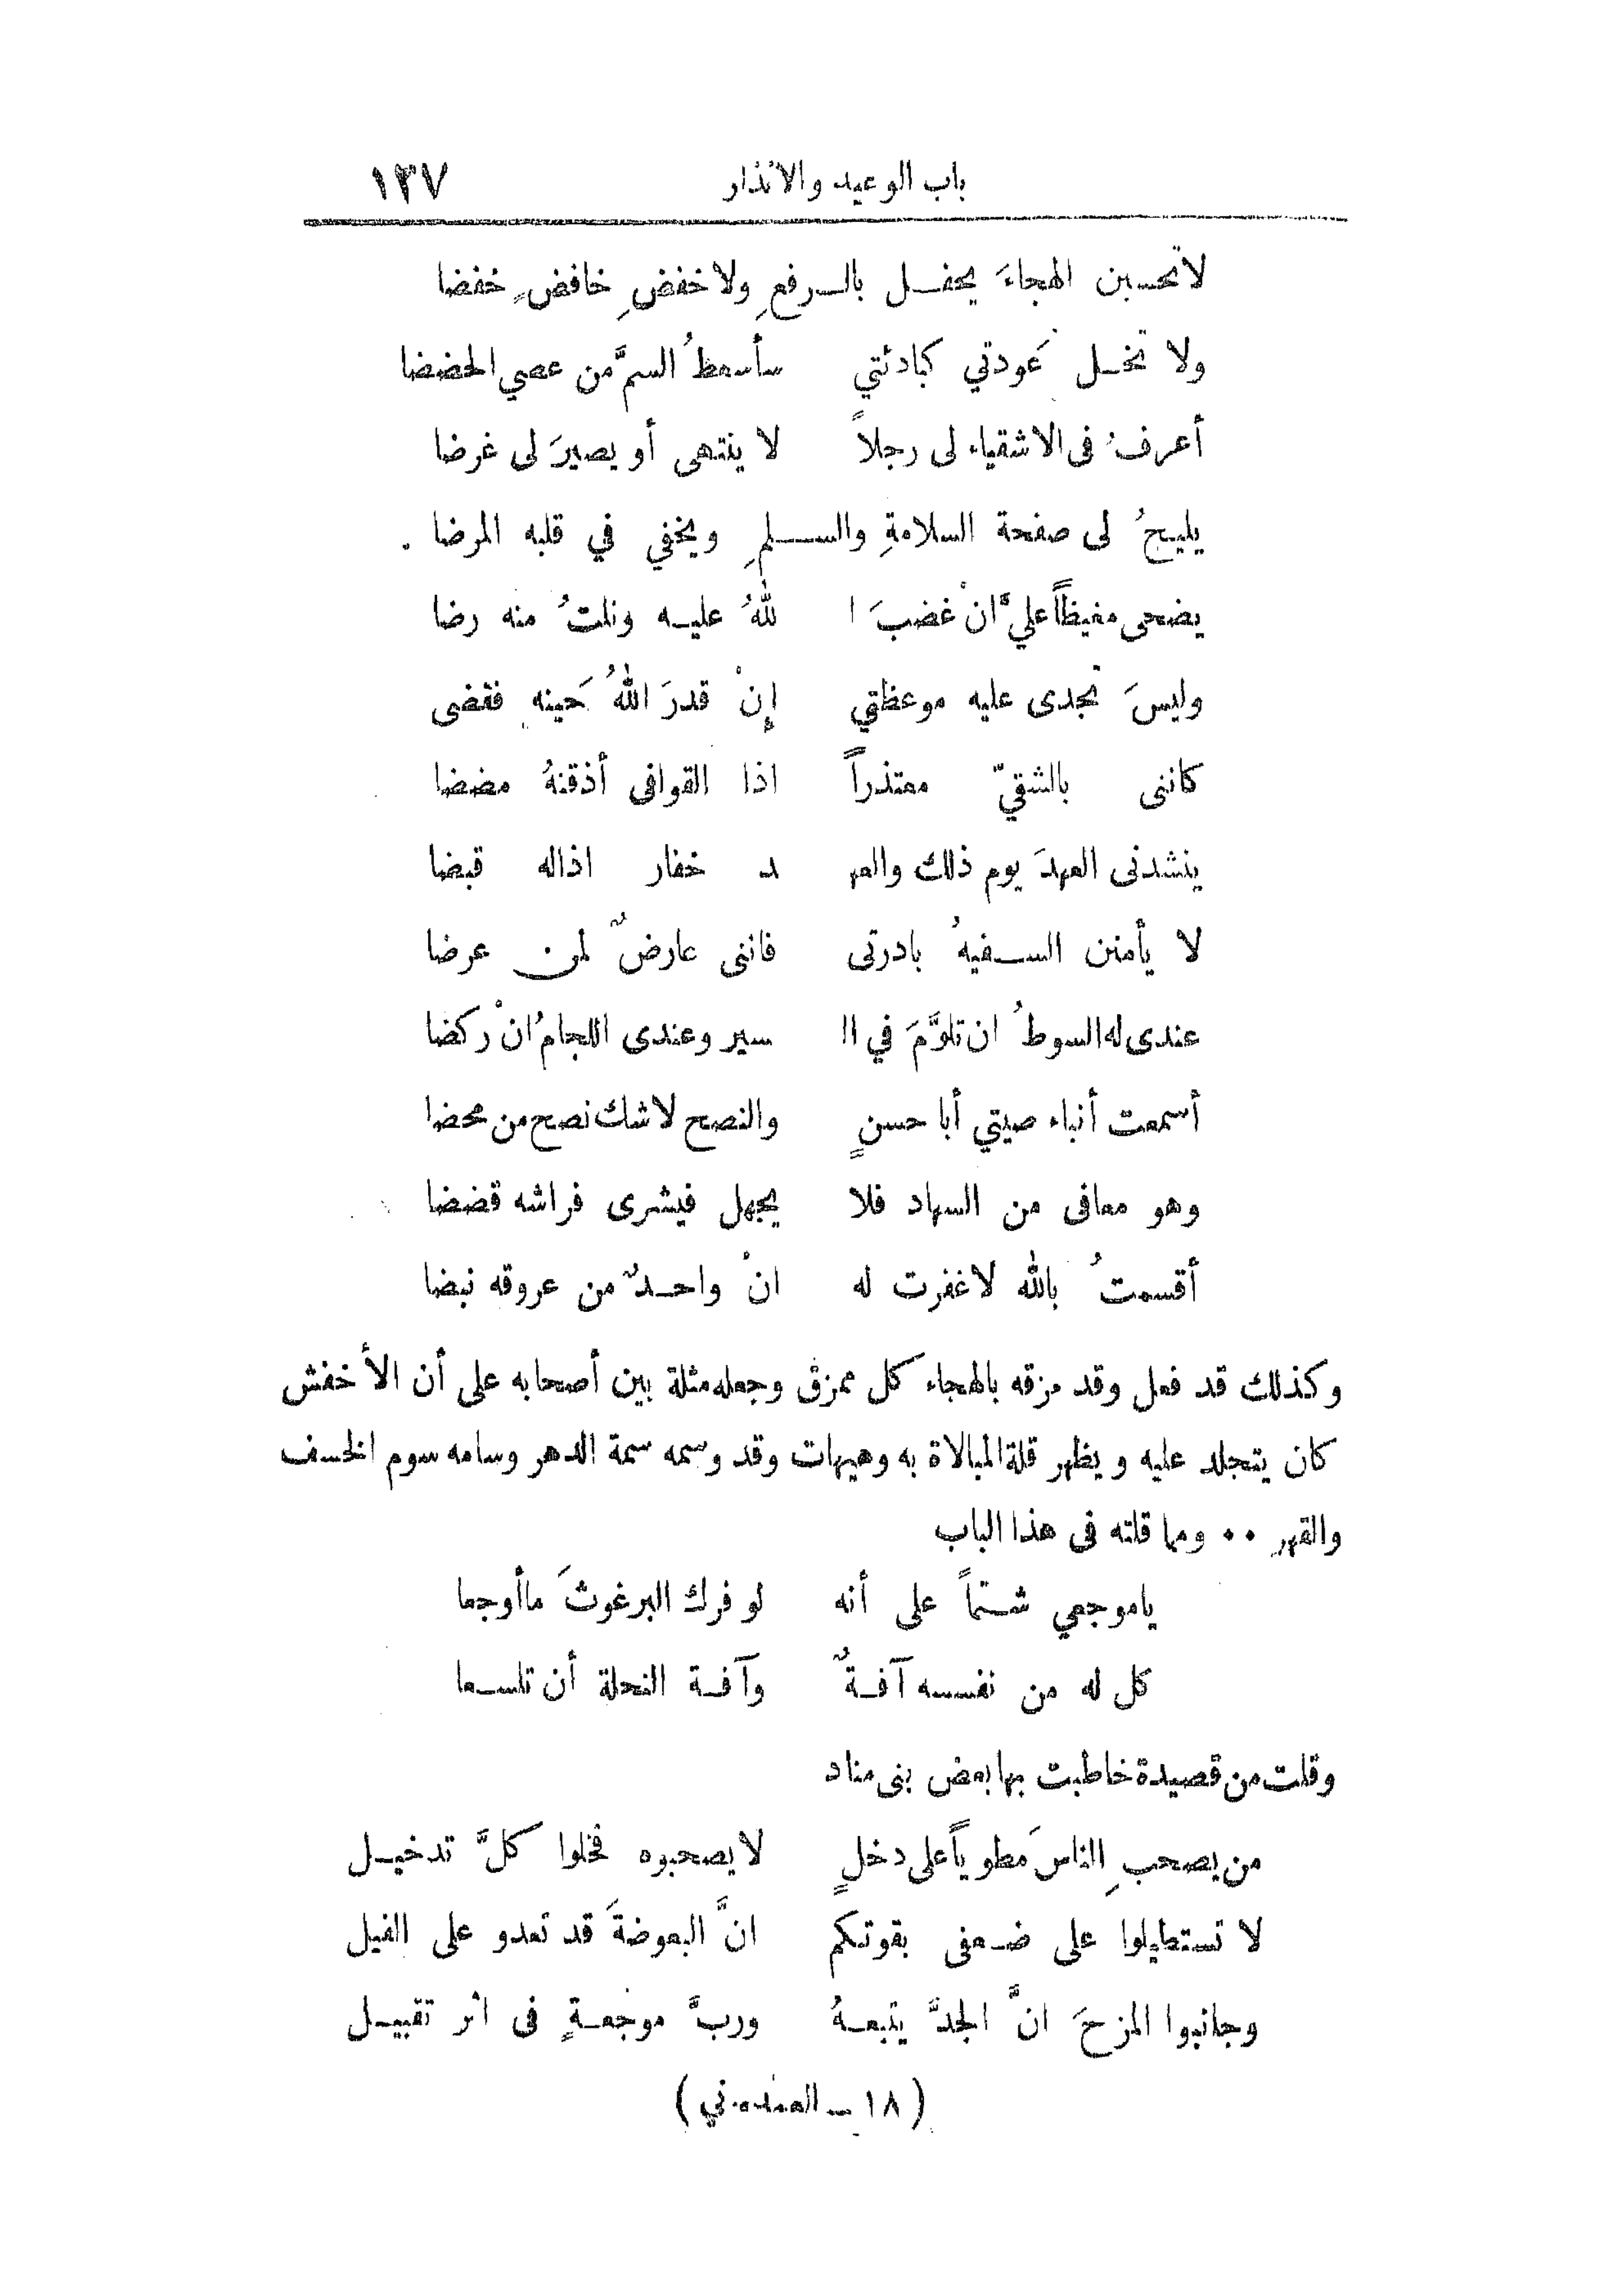 باب الوعيد والانذار ١٣٧
لا تحسبن الهجاءَ يحفل بالرفعِ ولا خفضِ خافضٍ خفضا
ولا تخل عَودتي كبادئتي سأسعطُ السمَّ من عصي الحضضا
أعرفُ فى الاشقياء لى رجلاً لا ينتهى أو يصيرَ لى غرضا
يليحُ لى صفحة السلامةِ والسلمِ ويخفي في قلبه المرضا
يضحى مغيظاً عليَّ انْ غضبَ ا للهُ عليه ونلتُ منه رضا
وليسَ تجدى عليه موعظتي إنْ قدرَ اللهُ حَينه فقضى
كاننى بالشقيّ معتذراً اذا القوافى أذقنهُ مضضا
ينشدنى العهدَ يوم ذلك والعهـ ـد خفار اذاله قبضا
لا يأمنن السفيهُ بادرتى فاننى عارضٌ لمن عرضا
عندى له السوطُ ان تلوَّمَ في ال سير وعندى اللجامُ انْ ركضا
أسمعت أنباء صيتي أبا حسنٍ والنصح لاشك نصح من محضا
وهو معافى من السهاد فلا يجهل فيشرى فراشه قضضا
أقسمتُ بالله لا غفرت له انْ واحدٌ من عروقه نبضا
وكذلك قد فعل وقد مزقه بالهجاء كل ممزق وجعله مثلة بين أصحابه على أن الأخفش
كان يتجلد عليه ويظهر قلة المبالاة به وهيهات وقد وسمه سمة الدهر وسامه سوم الخسف
والقهر ٠٠ ومما قلته فى هذا الباب
ياموجعي شتماً على أنه لو فرك البرغوثَ ماأوجعا
كل له من نفسه آفةٌ وآفة النحلة أن تلسعا
وقلت من قصيدة خاطبت بها بعض بنى مناد
من يصحبِ الناسَ مطوياً على دخلٍ لايصحبوه فخلوا كلَّ تدخيل
لا تستطيلوا على ضعفى بقوتكم انَّ البعوضةَ قد تعدو على الفيل
وجانبوا المزحَ انَّ الجدَّ يتبعهُ وربَّ موجعةٍ فى اثر تقبيل
(١٨ ـ العمده. ني)